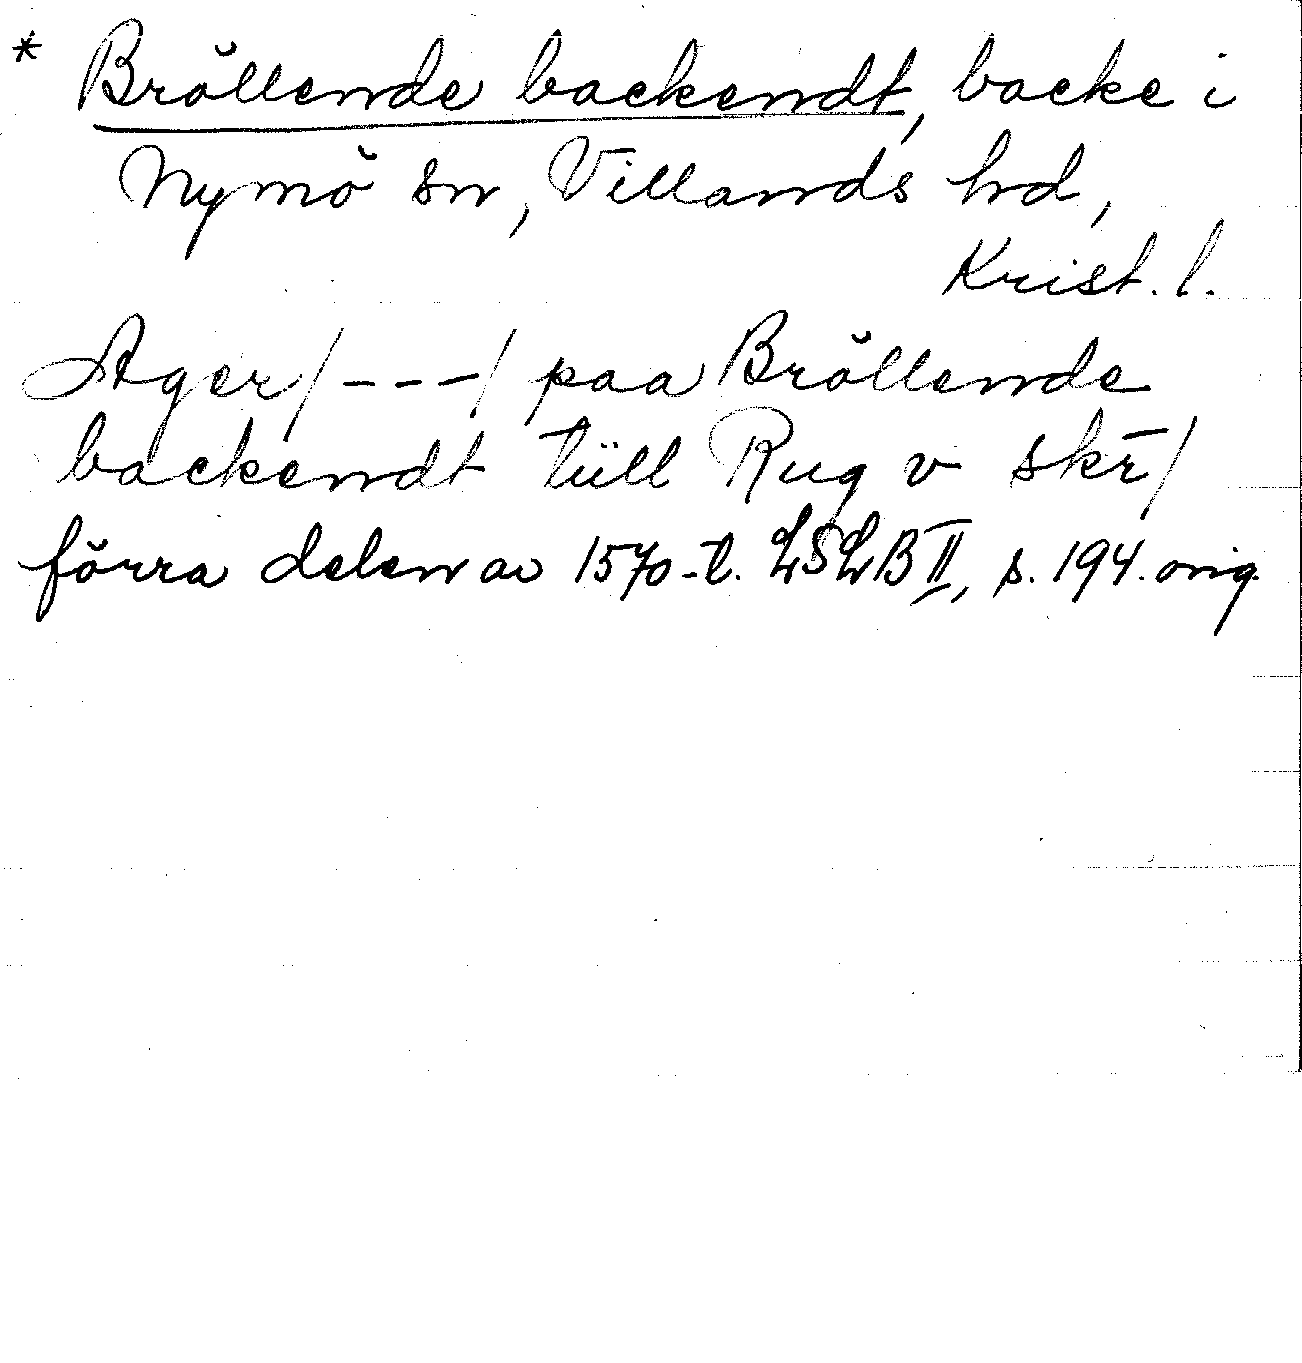 * Bröllende backendt, backe i
Nymö sn, Villands hd,
Krist. l.
Ager/---/ paa Bröllende
backendt tüll Rug v skr̄/
förra delen av 1570-t. LSLB II, s. 194. orig.